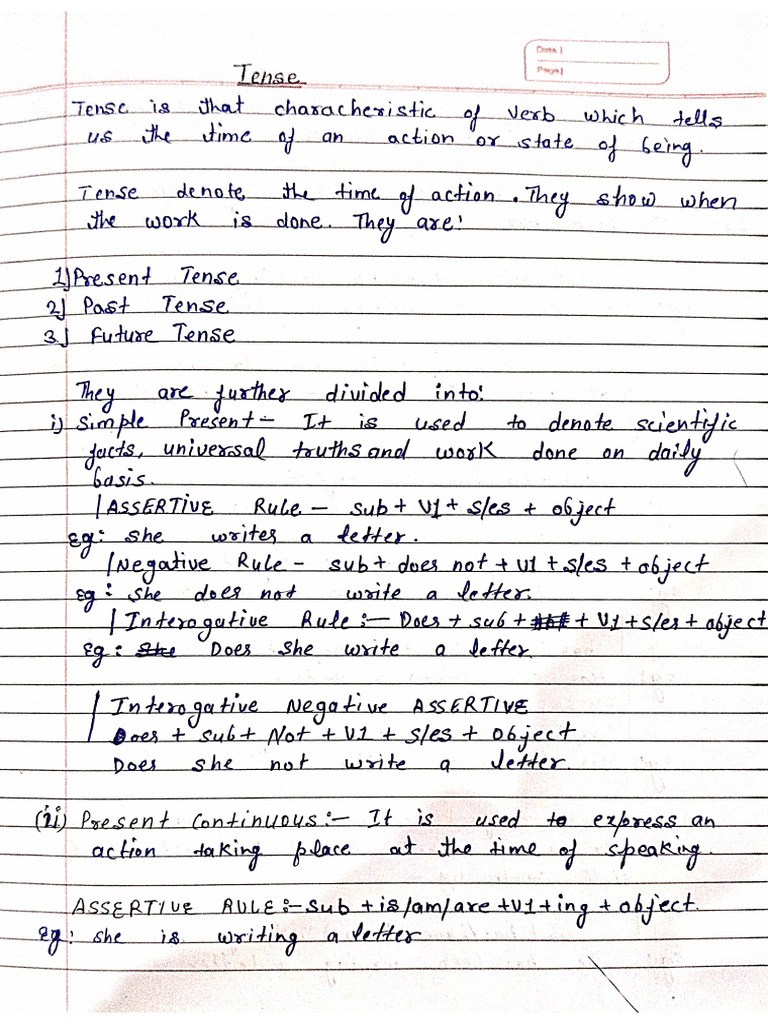 Date |
Page |
Tense
Tense is that characheristic of verb which tells
us the time of an action or state of being.
Tense denote the time of action. They show when
the work is done. They are:
1) Present Tense
2) Past Tense
3) Future Tense
They are further divided into:
i) Simple Present:- It is used to denote scientific
facts, universal truths and work done on daily
basis.
|ASSERTIVE Rule - sub + V1 + s/es + object
eg: she writes a letter.
|Negative Rule - sub + does not + V1 + s/es + object
eg: she does not write a letter.
| Interogative Rule :- Does + sub + + V1 + s/es + object
eg: She Does she write a letter.
| Interogative Negative ASSERTIVE
Does + sub + Not + V1 + s/es + object
Does she not write a letter.
(ii) Present Continuous:- It is used to express an
action taking place at the time of speaking.
ASSERTIVE RULE:- sub + is/am/are + V1 + ing + object.
eg: she is writing a letter